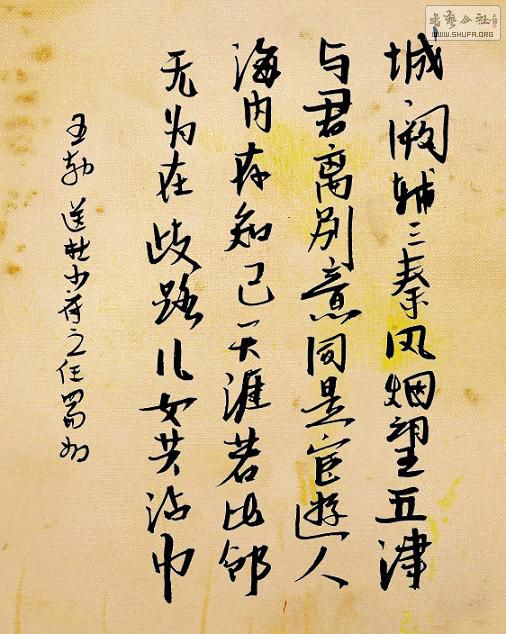 書藝公社
WWW.SHUFA.ORG
城阙辅三秦风烟望五津
与君离别意同是宦遊人
海内存知己天涯若比邻
无为在歧路儿女共沾巾
王勃 送杜少府之任蜀州